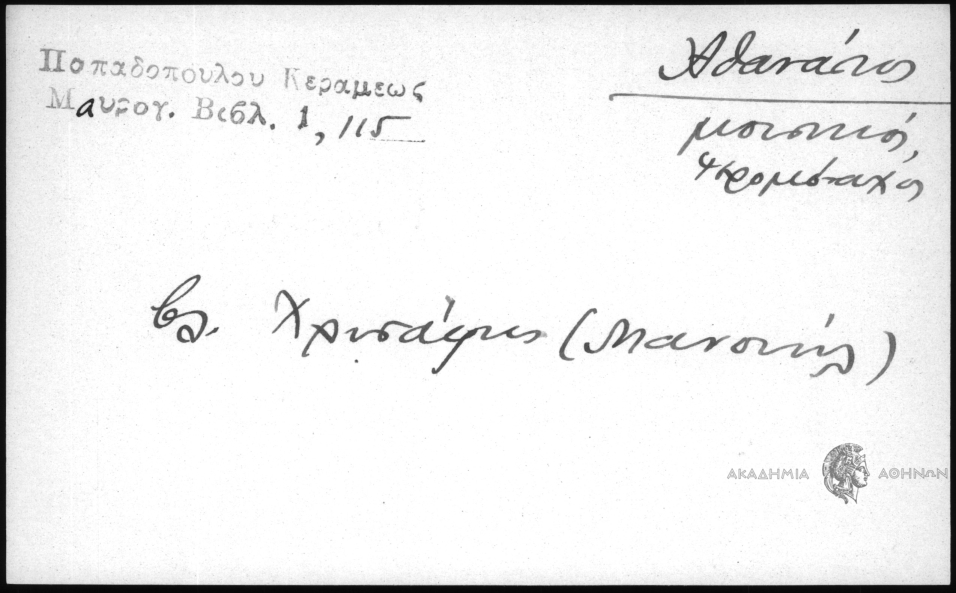 Παπαδοπούλου Κεραμεως
Μαυρογ. Βιβλ. 1, 115
Ἀθανάσιος
μουσικός,
ἱερομόναχος
βλ. Χρυσάφης (Μανουήλ)
ΑΚΑΔΗΜΙΑ ΑΘΗΝΩΝ